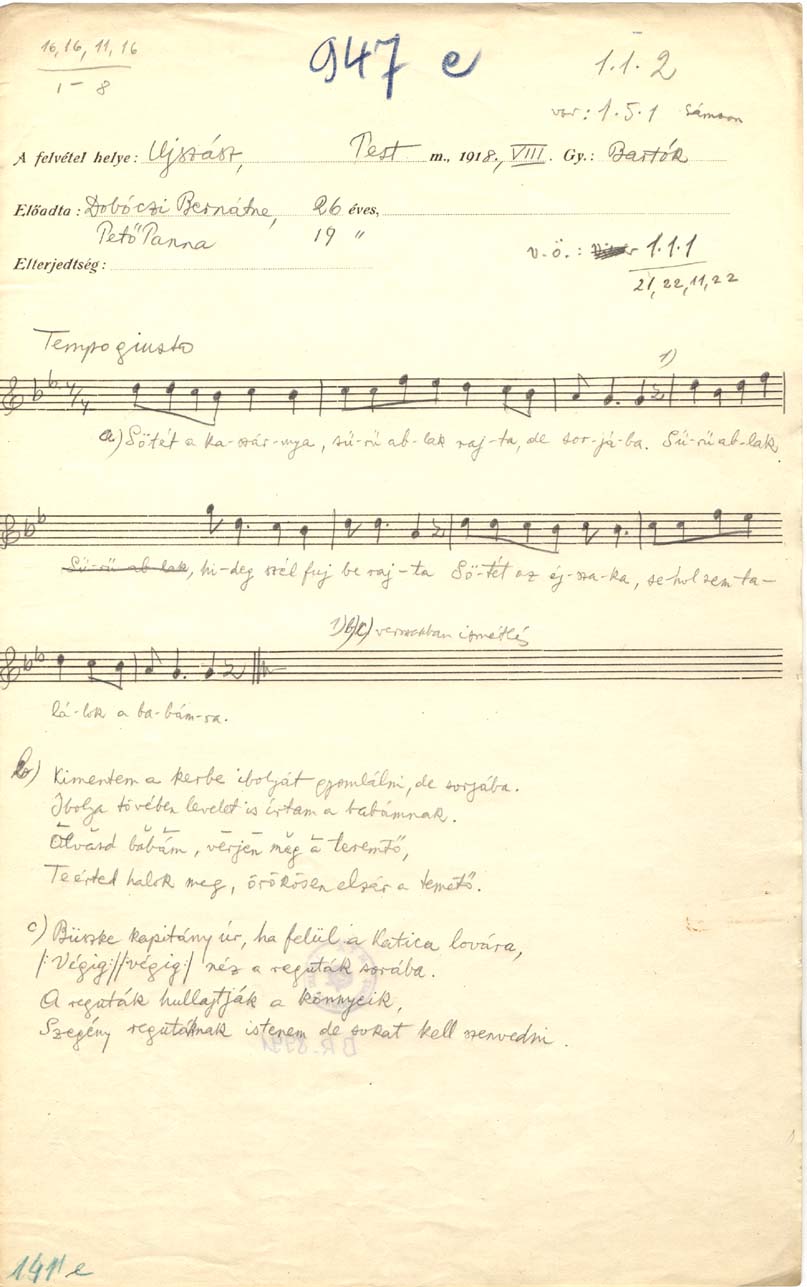 16, 16, 11, 16
1 – 8
947 e
1.1.2
var: 1.5.1 Sámson
A felvétel helye: Ujszász, Pest m., 1918., VIII. Gy.: Bartók
Előadta: Dobóczi Bernátne, 26 éves,
Pető Panna 19 "
v.ö.: 1.1.1
Elterjedtség:
21, 22, 11, 22
Tempo giusto
1)
a) Sötét a ka-szár-nya, sű-rű ab-lak raj-ta, de sor-já-ba. Sű-rű ab-lak
Sű-rű ab-lak, hi-deg szél fuj be raj-ta Sö-tét az éj-sza-ka, se-hol sem ta-
1) b) c) versszakban ismétlés
lá-lok a ba-bám-ra.
b) Kimentem a kerbe ibolyát gyomlálni, de sorjába.
Ibolya tövében levelet is írtam a babámnak.
Olvasd babám, verjen meg a teremtő,
Teérted halok meg, örökösen elzár a temető.
c) Büszke kapitány úr, ha felül a Katica lovára,
/: Végig :/ /: végig :/ néz a reguták sorába.
A reguták hullajtják a könnyeik,
Szegény regutáknak istenem de sokat kell szenvedni.
141 e